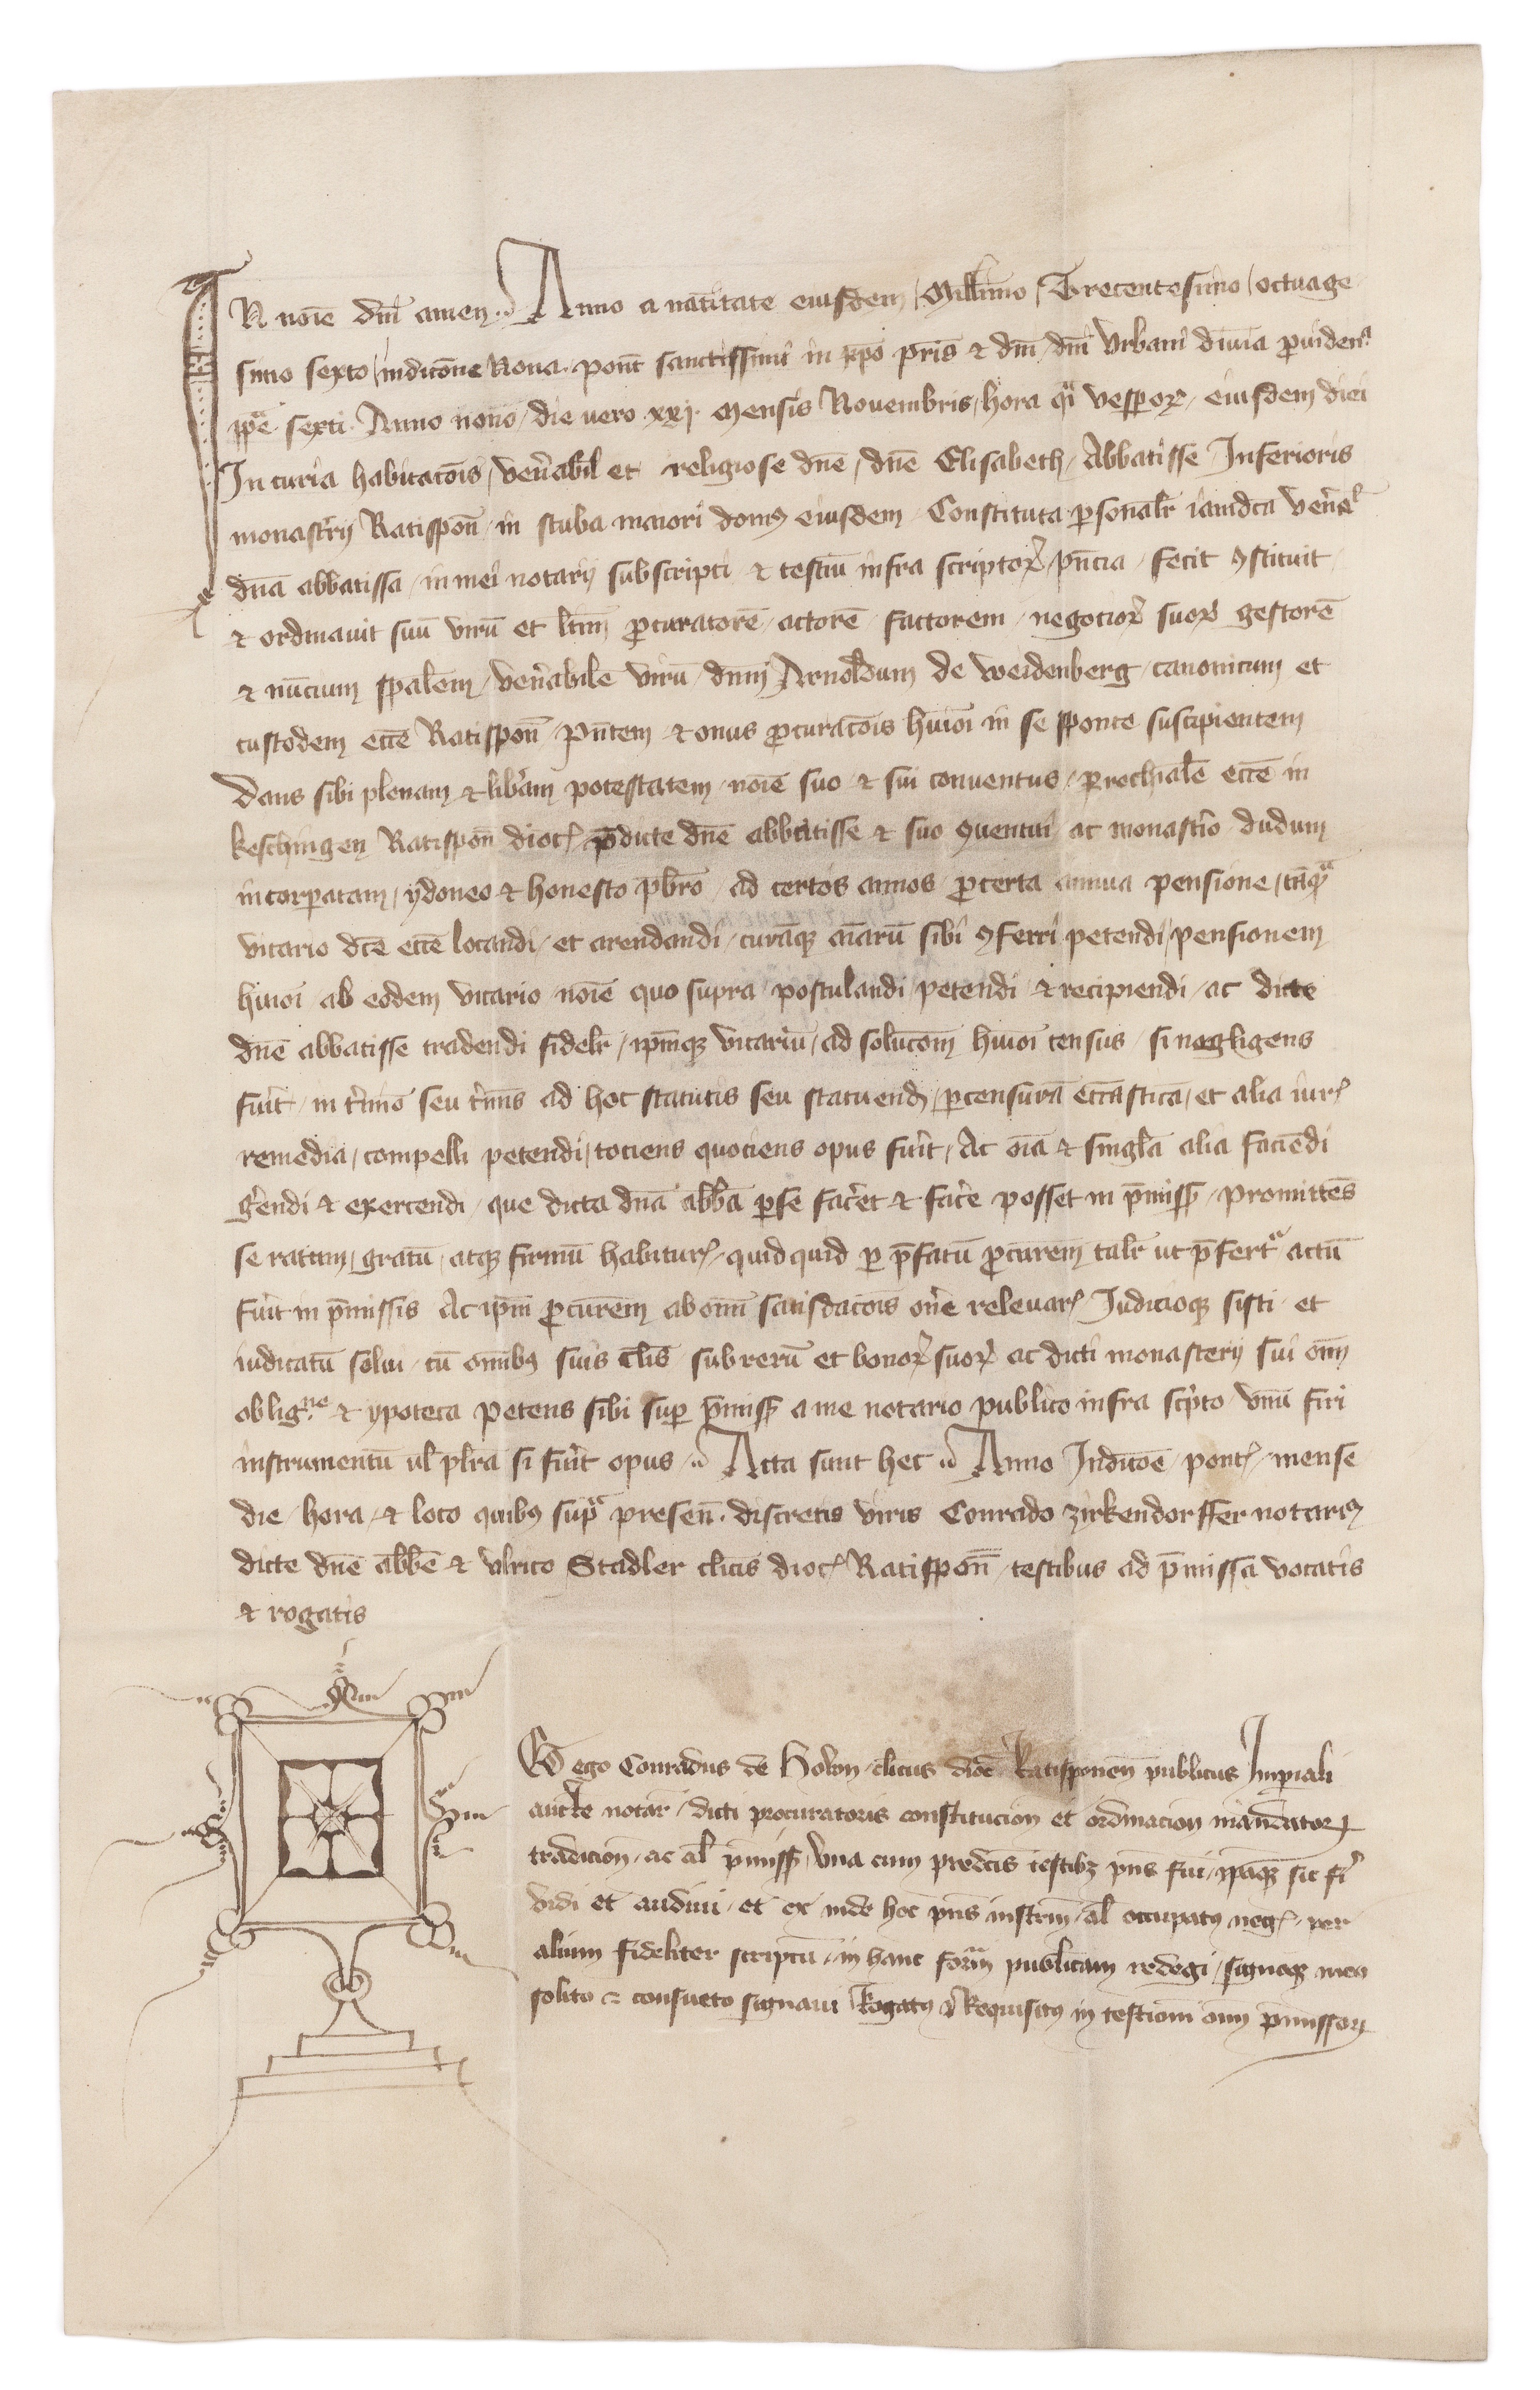 IN noīe dnī amen. Anno a natītate eiusdem Mill̄imo Trecentesimo octuage
simo sexto indictōne Nona pont̄ sanctissimi in xp̄o pr̄is & dn̄i dn̄i Vrbani diuīa ꝓuidenᵃ
pp̄e sexti Anno nono die uero xxj mensis Nouembris hora qͣi vesꝑoꝝ eiusdem diei
In curia habitacōis ven̄abil̄ et religiose dn̄e dn̄e Elisabeth Abbatisse Inferioris
monastr̄ij Ratispon̄ in stuba maiori domꝰ eiusdem Constituta ꝑsonalr̄ iamdc̄a ven̄el̄
dn̄a abbatissa in mei notarij subscripti & testiū infra scriptoꝝ pn̄cia fecit ꝯstituit
& ordinauit suū verū et ltīm ꝓcuratorē actorē factorem negocioꝝ suoꝝ gestorē
& nūcium spāl̄em ven̄abilē virū dnm̄ Arnoldum de Weidenberg canonicum et
custodem ecc̄e Ratispon̄ pn̄tem & onus ꝓcuracōis huiōi in se sponte suscipientem
Dans sibi plenam & lib̄am potestatem noīe suo & sui conuentus ꝑrochialē ecc̄e in
keschingen Ratispon̄ dioc̄ p̄dicte dn̄e abbatisse & suo ꝯuentui ac monastr̄io dudum
incorꝑatam ydoneo & honesto pb̄ro ad certos annos ꝓ certa annua pensione tāqͣ
vicario dc̄e ecc̄e locandi et arendandi curāqꝫ aīarū sibi ꝯferri petendi pensionem
huiōi ab eodem vicario noīe quo supra postulandi petendi & recipiendi ac dicte
dn̄e abbatisse tradendi fidelr̄ ipm̄qꝫ vicariū ad soluc̄om̄ huiōi census si negligens
fuīt in tīmō seu tīmīs ad hoc statutis seu statuend̄ ꝑ censurā ecc̄asticā et alia iur̄
remedia compelli petendi tociens quociens opus fuīt Ac oīa & singl̄a alia faciēdi
gērendi & exercendi que dicta dn̄a abb̄a ꝑ se fac̄et & fac̄e posset in p̄miss̄ promittēs
se ratum gratū atqꝫ firmū habitur̄ quidquid ꝑ p̄fatū ꝓcur̄em talr̄ ut p̄fertᵒ actū
fuīt in p̄missis Ac ip̄m ꝓcur̄em ab omī satisdacōis on̄e releuar̄ Iudicioqꝫ sisti et
iudicatū solui cū omībꝰ suis cl̄is sub rerū et bonoꝝ suoꝝ ac dicti monasterij sui om̄
obligⁿᵉ & ypoteca petens sibi suꝑ p̄miss̄ a me notario publico infra sc̄pto vnū fīri
instrumentū ul̄ pl̄ra si fuīt opus Acta sunt hec Anno Indictōe pont̄ mense
die hora & loco quibꝰ supͣ presen̄ discretis viris Conrado zirkendorffer notarīo
dicte dn̄e abb̄e & Vlrico Stadler cl̄icis dioc̄ Ratispon̄ testibus ad p̄missa vocatis
& rogatis
Et ego Conradus de Holcon cl̄icus dioc̄ Ratisponen̄ publicus Imperiali
auctē notar̄ dicti procuratoris constitucion̄ et ordinacion̄ mandatoꝝ
tradicion̄ ac al̄ p̄miss̄ vna cum predc̄is testibꝫ pn̄s fui ipāqꝫ sic fīri
vidi et audiui et ex inde hoc pn̄s instrm̄ al̄ occupatꝰ neḡ per
alium fideliter scriptū in hanc formͣ publicam redegi signoqꝫ meo
solito & consueto signaui Rogatꝰ & Requisitꝰ in testiom̄ om̄ p̄missoꝝ